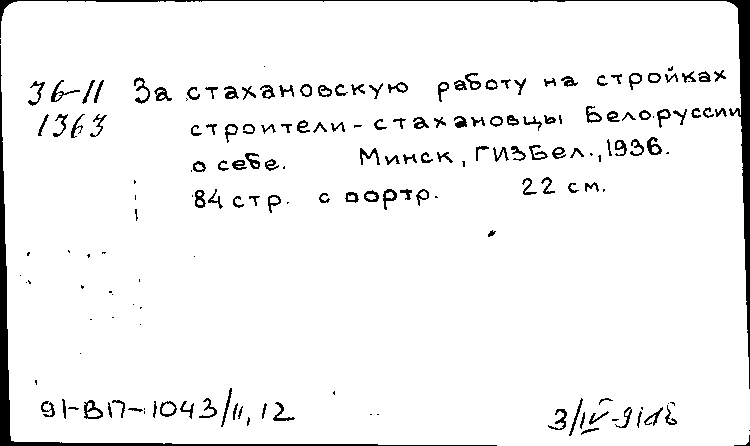 36-11 За стахановскую работу на стройках
1363 строители-стахановцы Белоруссии
о себе. Минск, ГИЗБел., 1936.
84 стр. с портр. 22 см.
91-ВП-1043/11, 12
3/IV-91